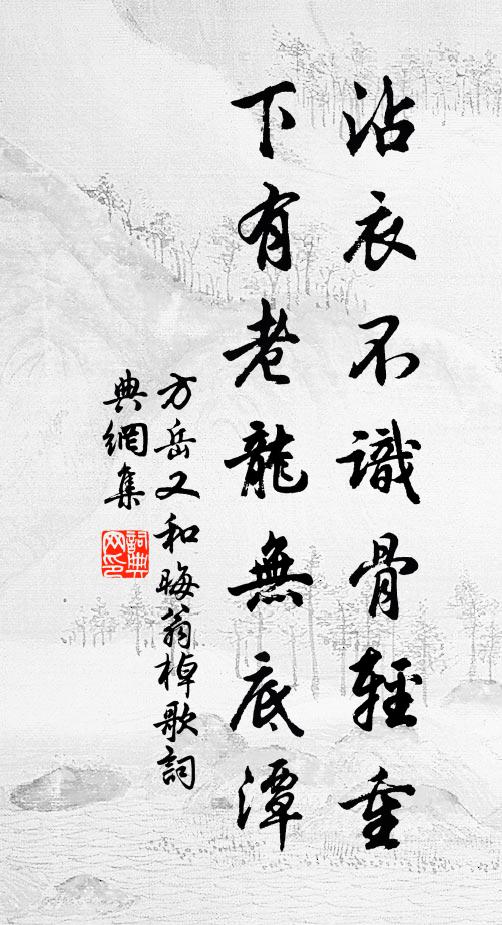 沾衣不識骨輕重
下有老龍無底潭
方岳又和晦翁棹歌詞
典網集
詞典网印